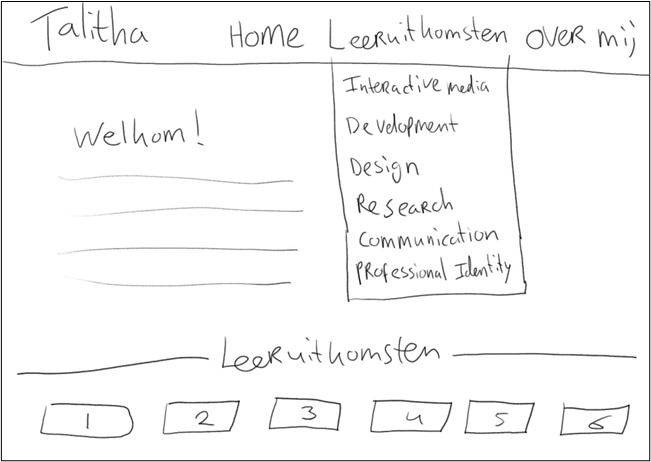 Talitha Home Leeruitkomsten over mij
Interactive media
Development
Design
Research
Communication
Professional Identity
Welkom!
Leeruitkomsten
1 2 3 4 5 6